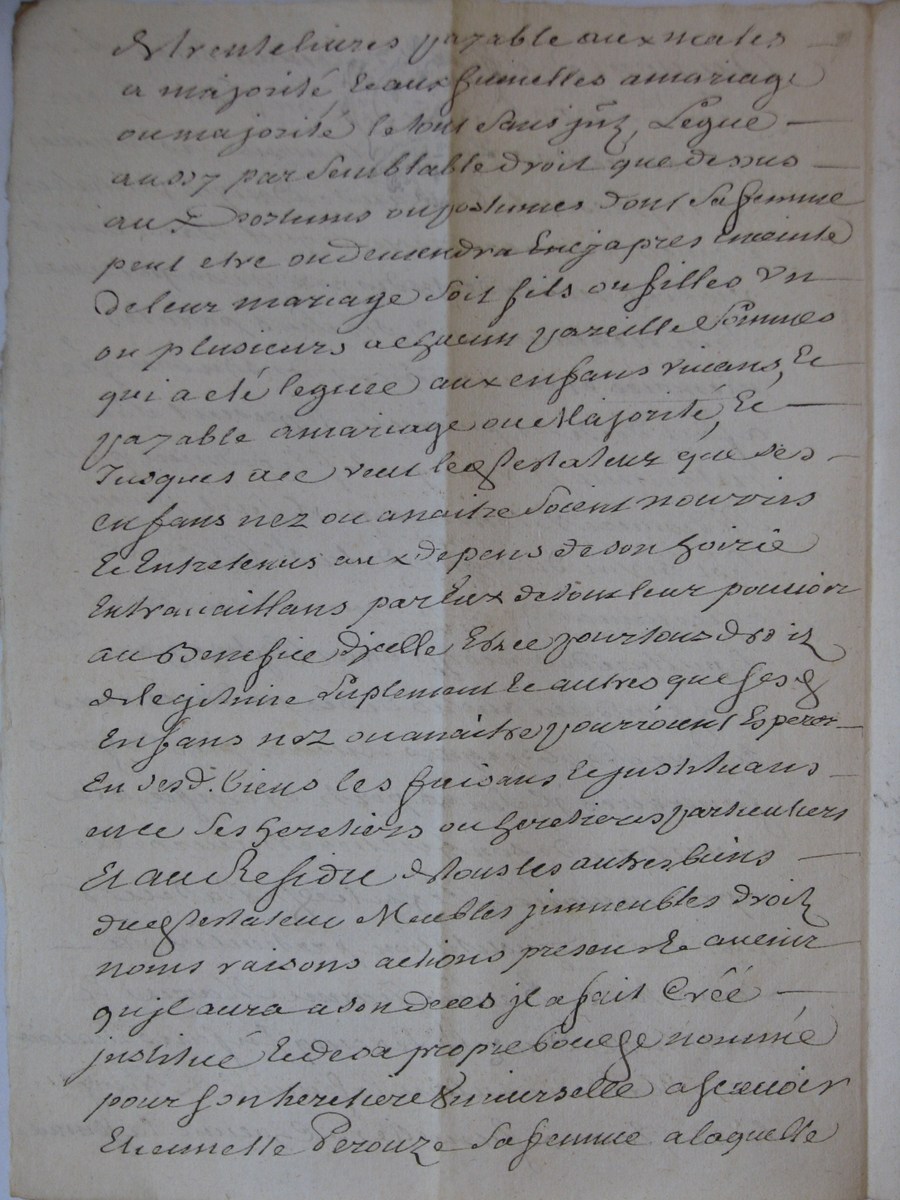 de trente livres payable aux males
a majorité & aux fumelles a mariage
ou majorité le tout sans jnt, Legue
aussy par semblable droit que dessus
aux postumes ou postumes dont sa femme
peut etre ou deviendra Encjapres enceinte
de leur mariage soit fils ou filles Un
ou plusieurs a chacun pareille somme
qui a eté leguee aux enfans vivans, &
payable a mariage ou Majorité, &
Jusques a ce veut led testateur que ses
enfans nez ou a naitre soient nourris
& Entretenus aux depens de son hoirie
En travaillans par Eux de tout leur pouvoir
au Benefice d'jcelle Et ce pour tous droitz
de legitime suplement & autres que sesd
Enfans nez ou a naitre pourroient Esperer
En sesd. biens les faisans & jnstituans
en ce ses heretiers ou heretieres particuliers
Et au Residu de tous les autres biens
dud testateur Meubles jmmeubles droitz
noms raisons actions presens & avenir
qu'jl aura a son deces jl a fait Créé
jnstitué & de sa propre bouche nommé
pour son heretiere Universelle a scavoir
Etiennette Perouze sa femme a laquelle